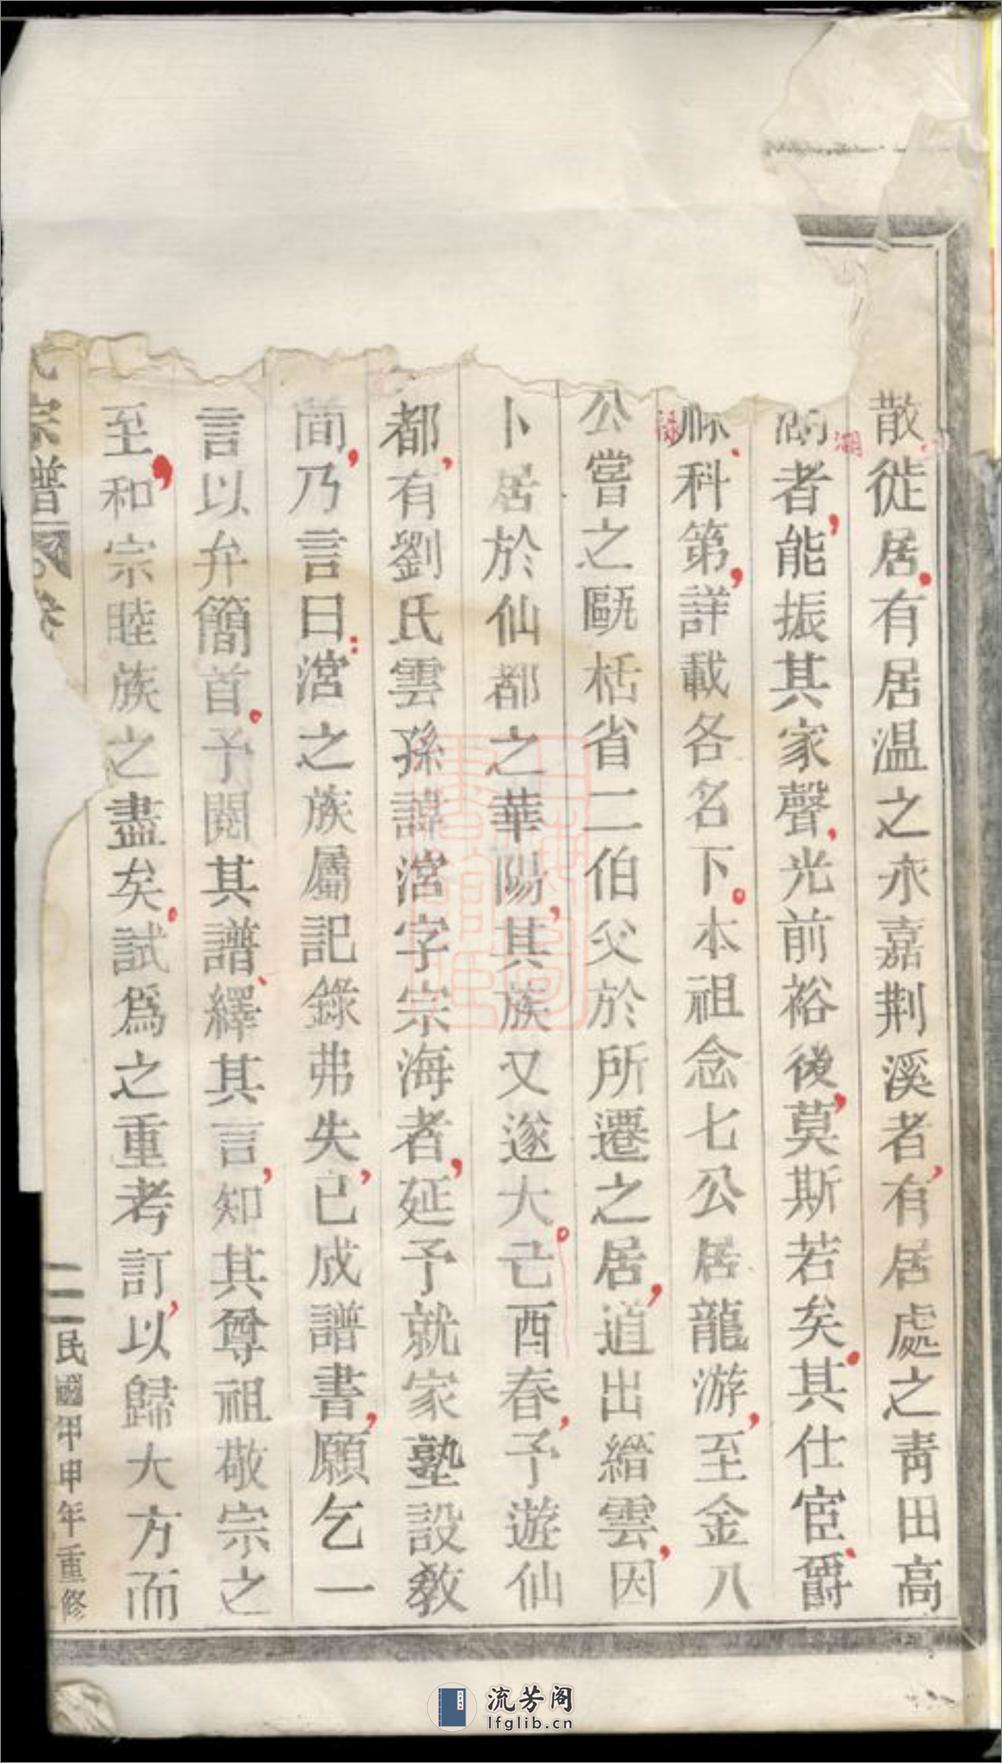 散徙居有居温之永嘉荆溪者有居處之青田高
湖者能振其家聲光前裕後莫斯若矣其仕宦爵
祿科第詳載各名下本祖念七公居龍游至金八
公嘗之甌栝省二伯父於所遷之居道出縉雲因
卜居於仙都之華陽其族又遂大己酉春予遊仙
都有劉氏雲孫諱渻字宗海者延予就家塾設教
間乃言曰渻之族屬記錄弗失已成譜書願乞一
言以弁簡首予閱其譜繹其言知其尊祖敬宗之
至和宗睦族之盡矣試爲之重考訂以歸大方而
氏宗譜 卷
二
民國甲申年重修
流芳阁
lfglib.cn